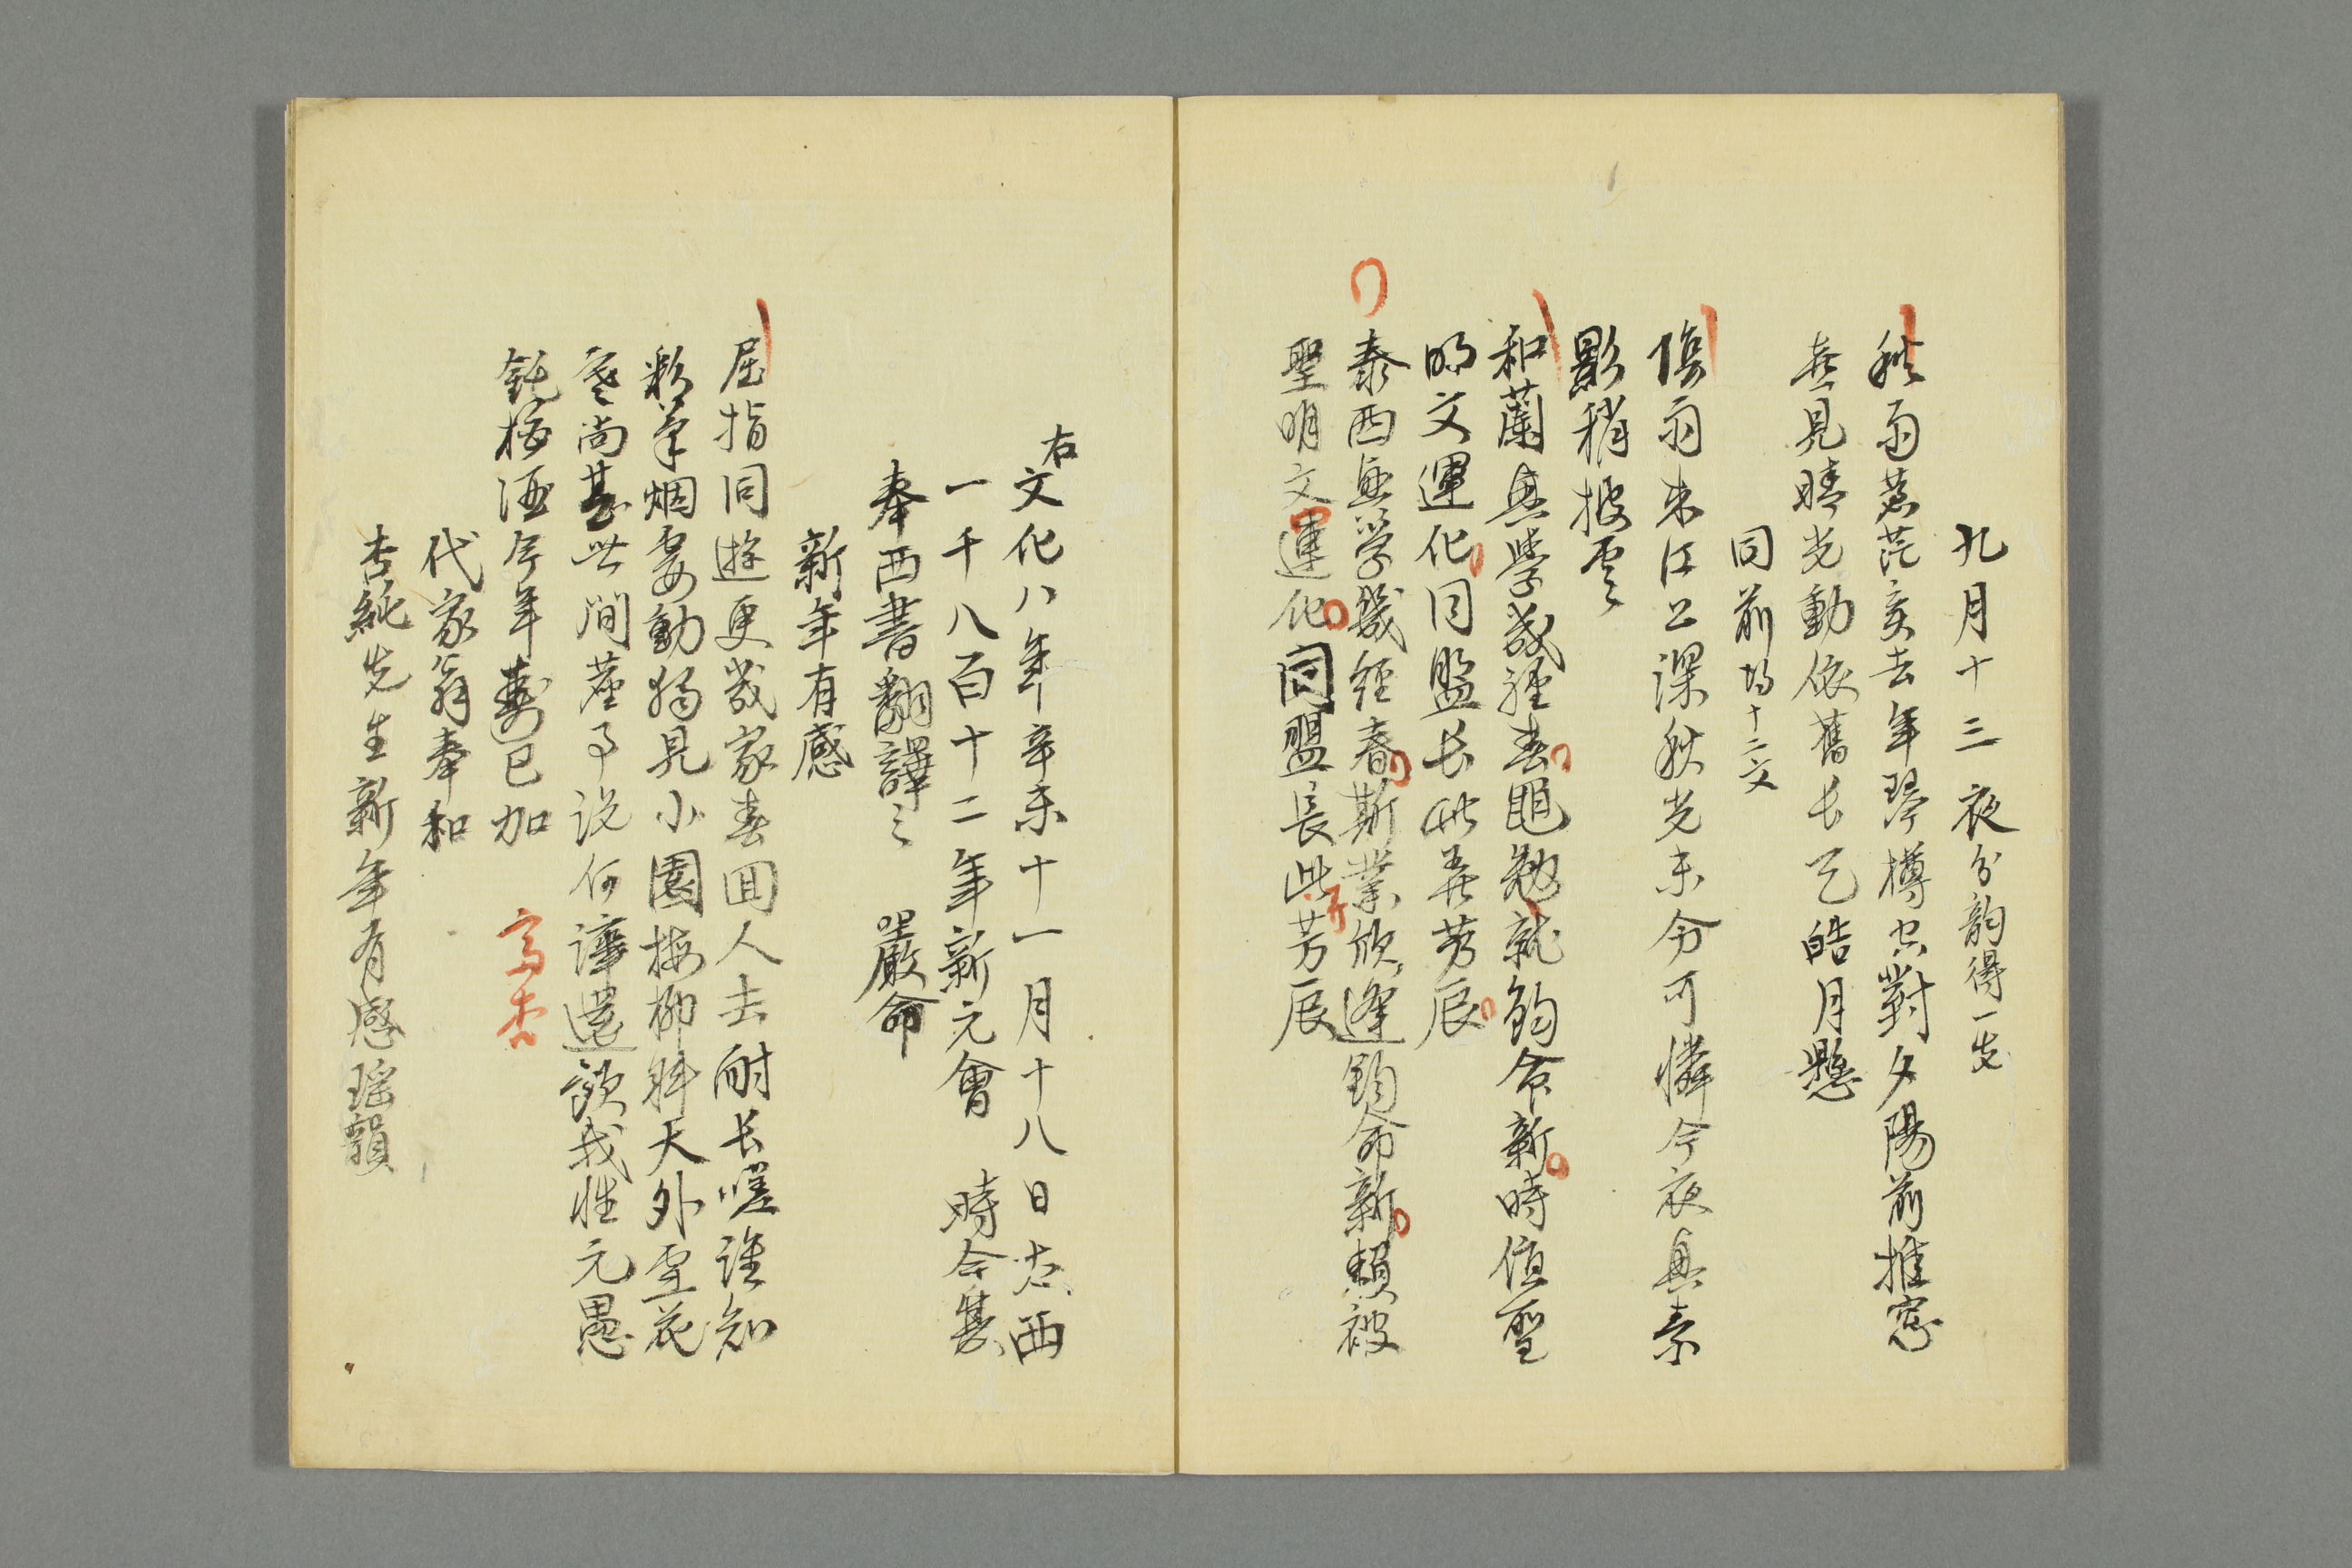 九月十三夜分韵得一先
秋雨蒼茫亥去年琴樽空對夕陽前推窓
喜見晴光動依舊長天皓月懸
同前 十二文
陰雨来江上深秋光未分可憐今夜興素
影稍披雲
和蘭興学幾経春黽勉就鈞命新時値聖
明文運化同盟長此弄芳辰
泰西興学幾経春斯業欣逢鈞命新頼被
聖明文運化同盟長此弄芳辰
右文化八年辛未十一月十八日志西
一千八百十二年新元會 時令集
奉西書翻譯之 嚴命
新年有感
屈指同遊更幾家春回人去耐長嗟誰知
彩筆烟雲動獨見小園梅柳斜天外雪花
寒尚甚世間塵事説何譁還歎我性元愚
鈍梅酒今年壽已加
高杏
代家翁奉和
杏純先生新年有感瑶韻